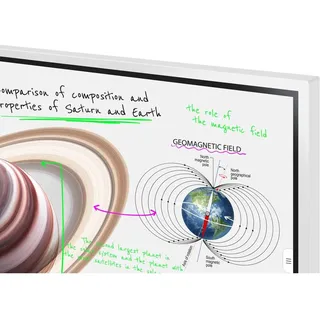 omparison of composition and
roperties of Saturn and Earth
the role of
the magnetic field
GEOMAGNETIC FIELD
North
magnetic
pole
North
geographical
pole
South
magnetic
pole
second largest planet in
system and the planet with
satellites in the